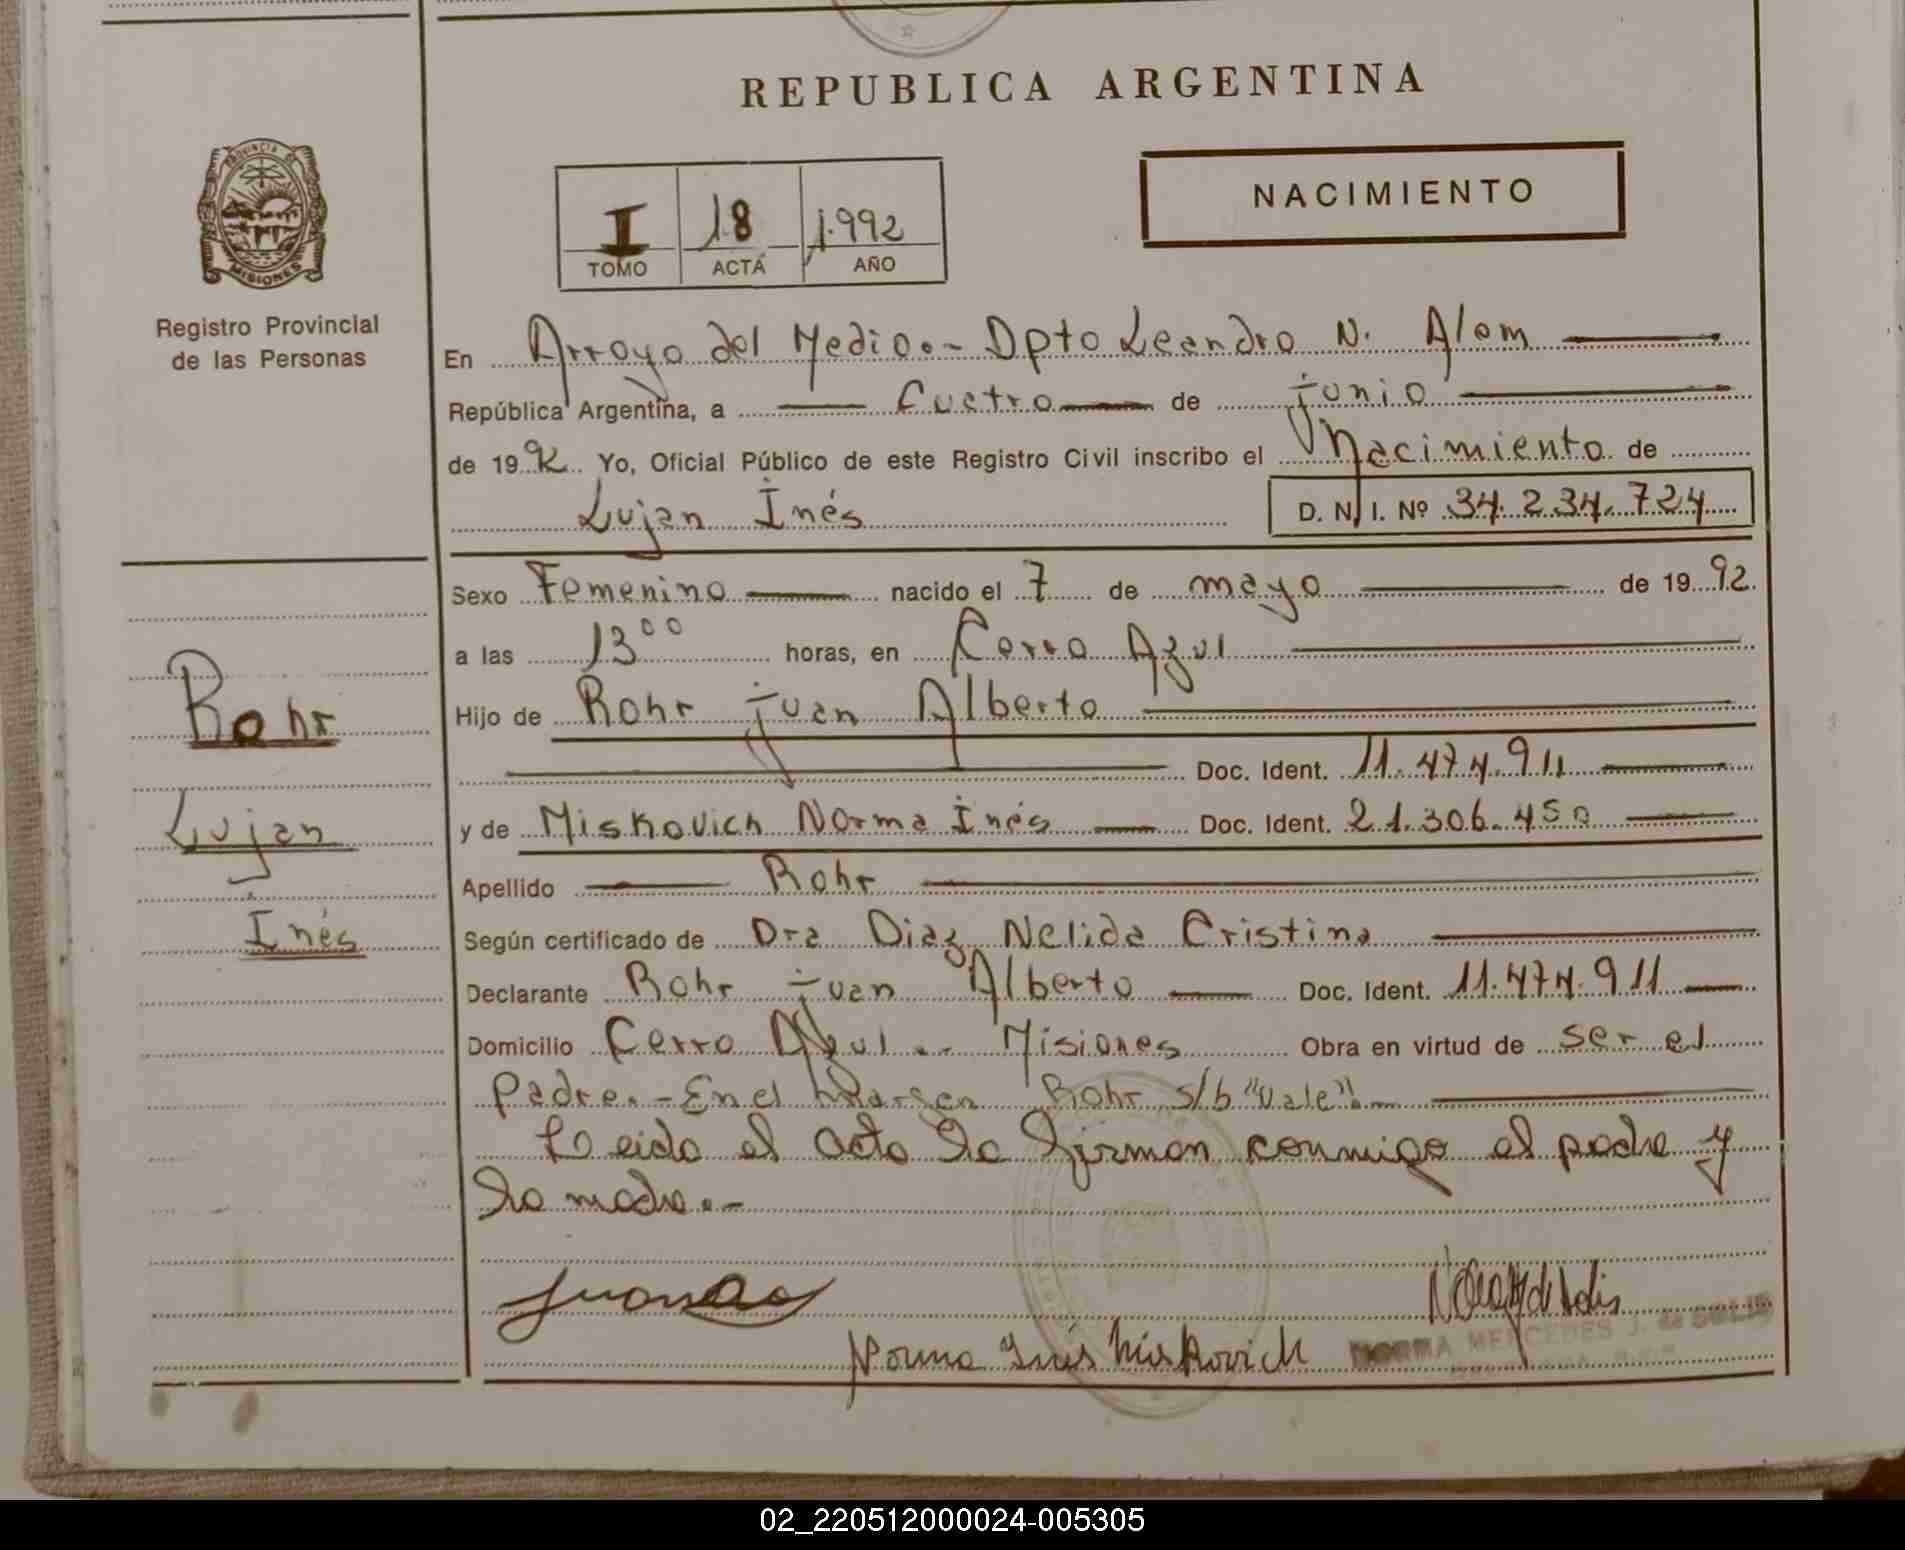 REPUBLICA ARGENTINA
NACIMIENTO
I 18 1.992
TOMO ACTA AÑO
PROVINCIA DE
MISIONES
Registro Provincial
de las Personas
En Arroyo del Medio.- Dpto Leandro N. Alem
República Argentina, a Cuatro de junio
de 1992. Yo, Oficial Público de este Registro Civil inscribo el Nacimiento de
Lujan Inés D. N. I. Nº 34.234.724
Sexo Femenino nacido el 7 de mayo de 1992.
a las 13⁰⁰ horas, en Cerro Azul
Hijo de Rohr juan Alberto
Doc. Ident. 11.474.911
y de Miskovich Norma Inés Doc. Ident. 21.306.450
Apellido Rohr
Según certificado de Dra Diaz Nelida Cristina
Declarante Rohr juan Alberto Doc. Ident. 11.474.911
Domicilio Cerro Azul.- Misiones Obra en virtud de ser el
padre.- En el Margen Rohr s/b "Vale".-
Leida el acta la firman conmigo el padre y
la madre.-
Norma Inés Miskovich
NORMA MERCEDES J. de SOLIS
Rohr
Lujan
Inés
02_220512000024-005305